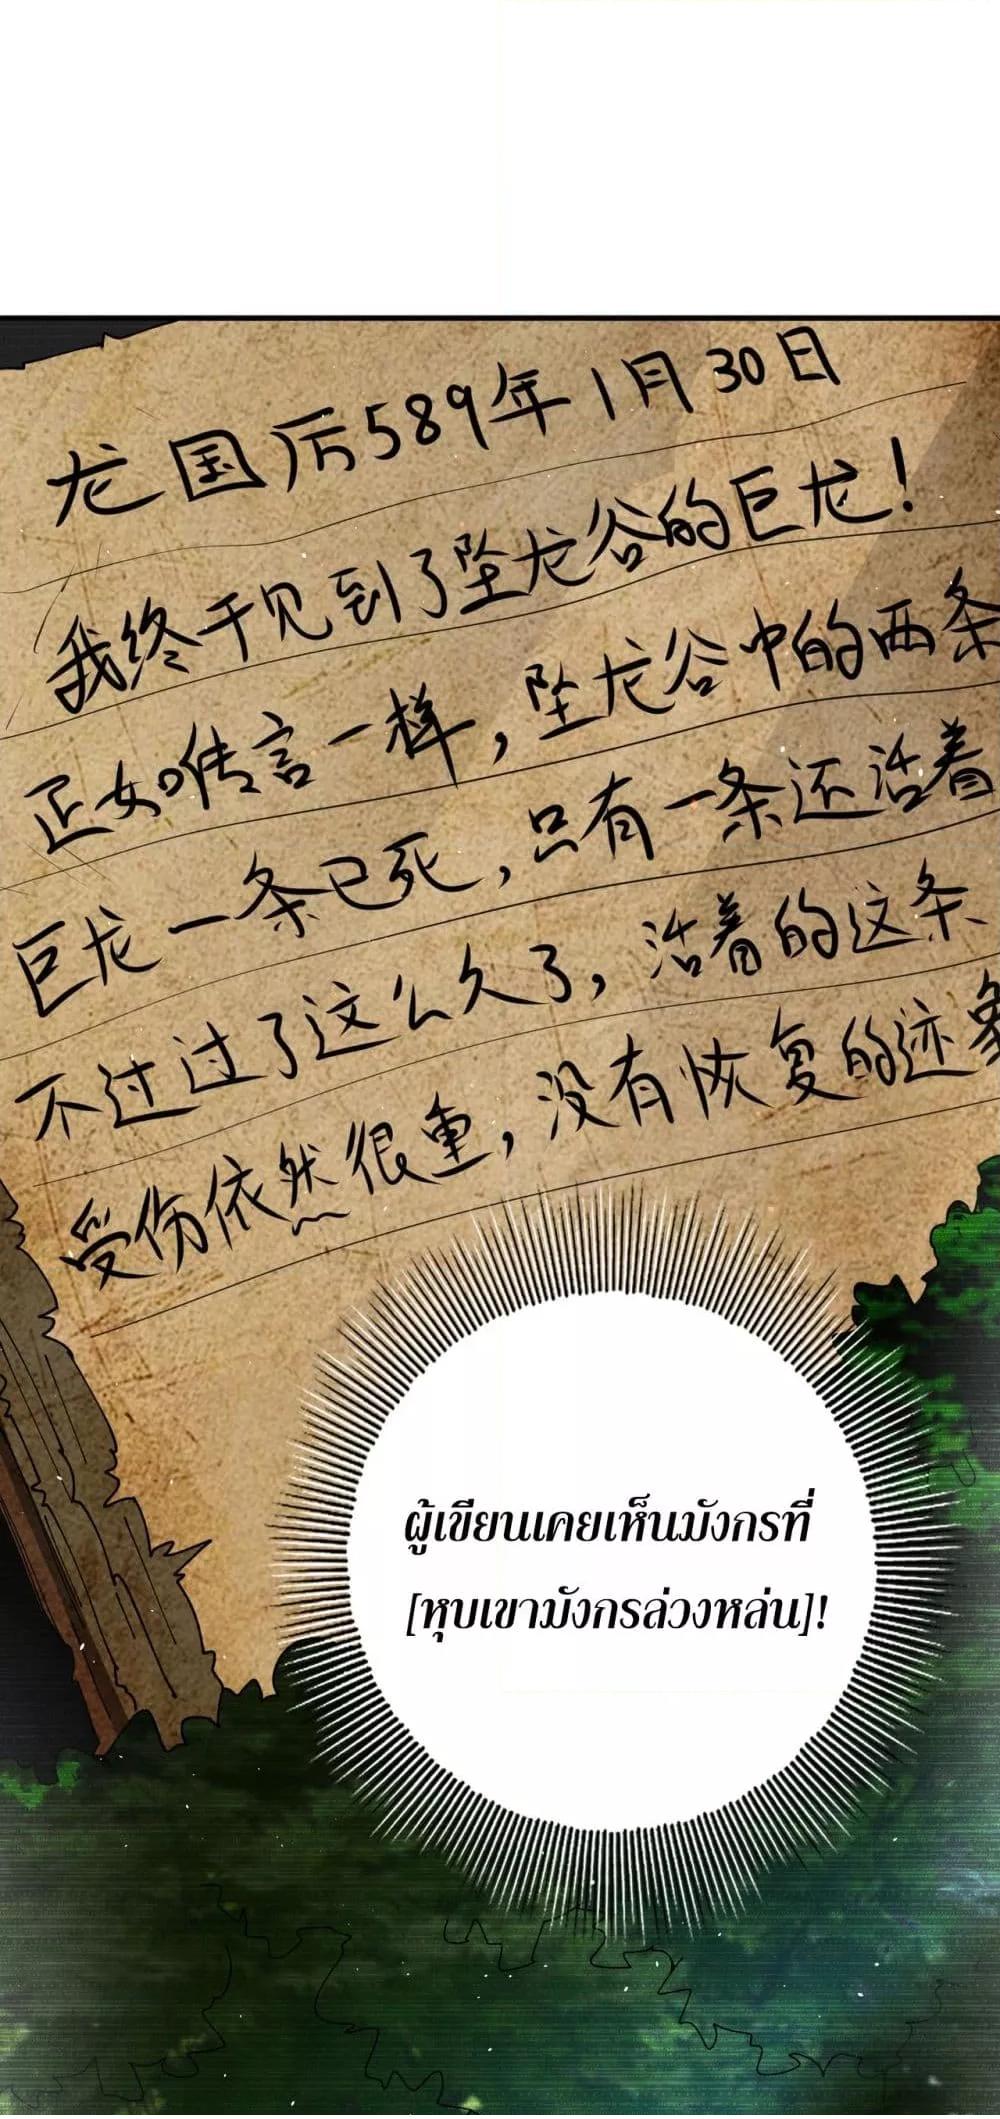 龙国历589年1月30日
我终于见到了坠龙谷的巨龙!
正如传言一样,坠龙谷中的两条
巨龙一条已死,只有一条还活着
不过过了这么久了,活着的这条
受伤依然很重,没有恢复的迹象
ผู้เขียนเคยเห็นมังกรที่
[หุบเขามังกรล่วงหล่น]!